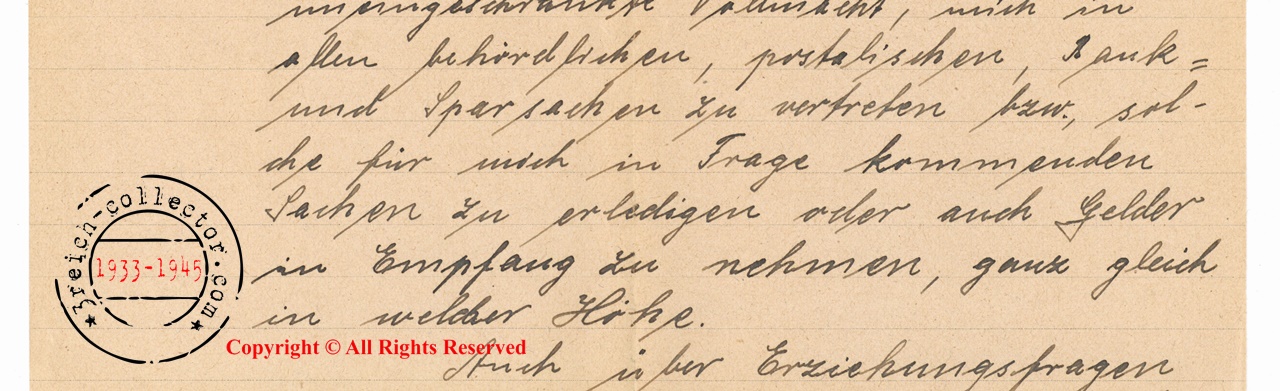 uneingeschränkte Vollmacht, mich in
allen behördlichen, postalischen, Bank=
und Sparsachen zu vertreten bzw., sol-
che für mich in Frage kommenden
Sachen zu erledigen oder auch Gelder
in Empfang zu nehmen, ganz gleich
in welcher Höhe.
Auch über Erziehungsfragen
3reich-collector.com
1933-1945
Copyright © All Rights Reserved